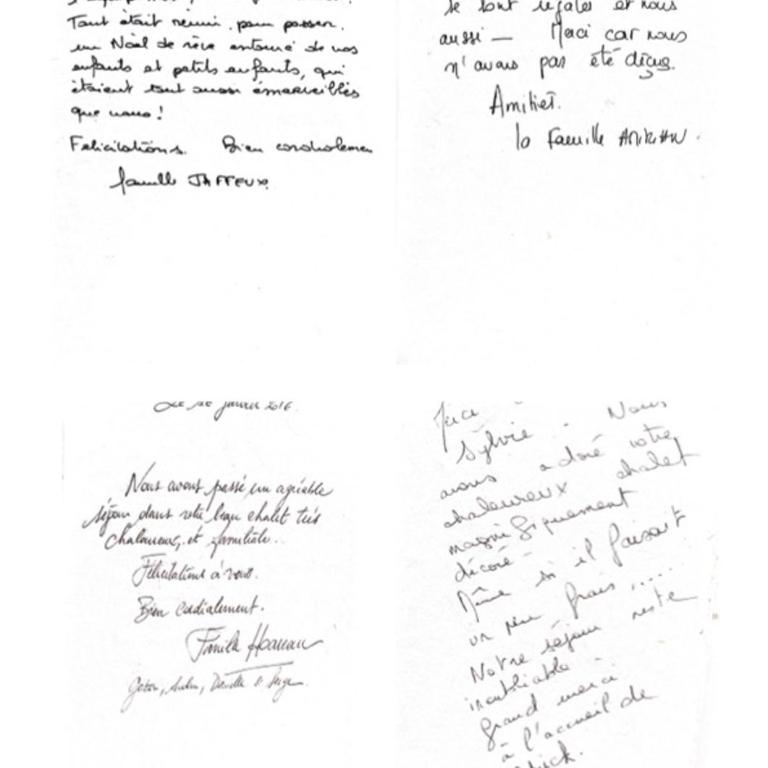 Tout était réuni pour passer
un Noël de rêve entouré de nos
enfants et petits enfants, qui
étaient tout aussi émerveillés
que nous!
Félicitations. Bien cordialemen
famille JAFFEUX.
se sont régalés et nous
aussi — Merci car nous
n'avons pas été déçus.
Amitiés.
la Famille
janvier 2016.
Nous avons passé un agréable
séjour dans votre beau chalet très
chaleureux, et familiale..
Félicitations à vous.
Bien cordialement.
Famille
Sylvie. Nous
avons adoré votre
chaleureux chalet
magnifiquement
décoré -
Même si il faisait
un peu frais .....
Notre séjour reste
inoubliable
grand merci
à l'accueil de